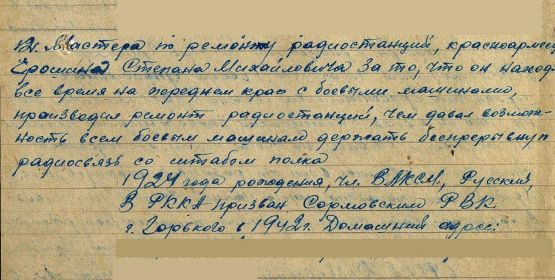 13. Мастера по ремонту радиостанций, красноармейц
Ерошина Степана Михайловича за то, что он наход
все время на переднем крае с боевыми машинами,
производил ремонт радиостанций, чем давал возмож-
ность всем боевым машинам держать беспрерывную
радиосвязь со штабом полка
1924 года рождения, чл. ВЛКСМ, Русский,
В РККА призван Сормовским РВК
г. Горького в 1942 г. Домашний адрес: